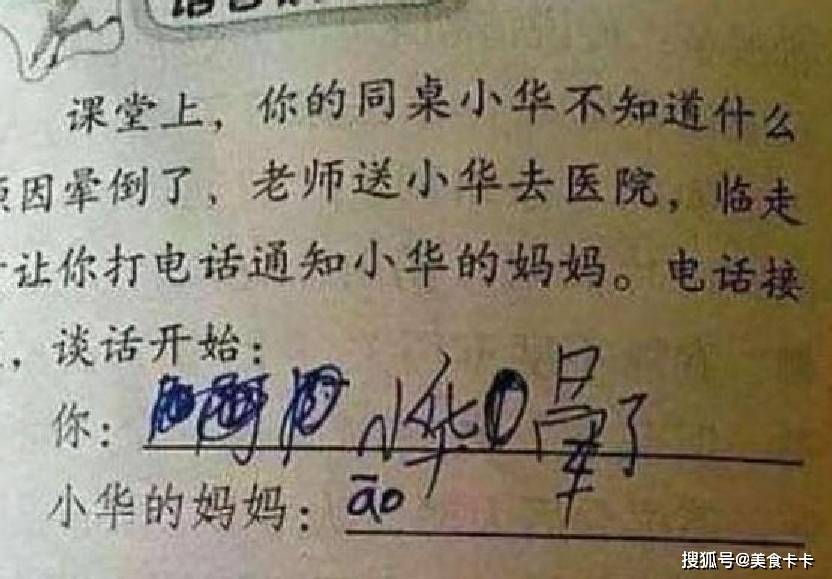 课堂上，你的同桌小华不知道什么
因晕倒了、老师送小华去医院，临走
让你打电话通知小华的妈妈。电话接
，谈话开始：
你：小华晕了
小华的妈妈：āo
搜狐号@美食卡卡